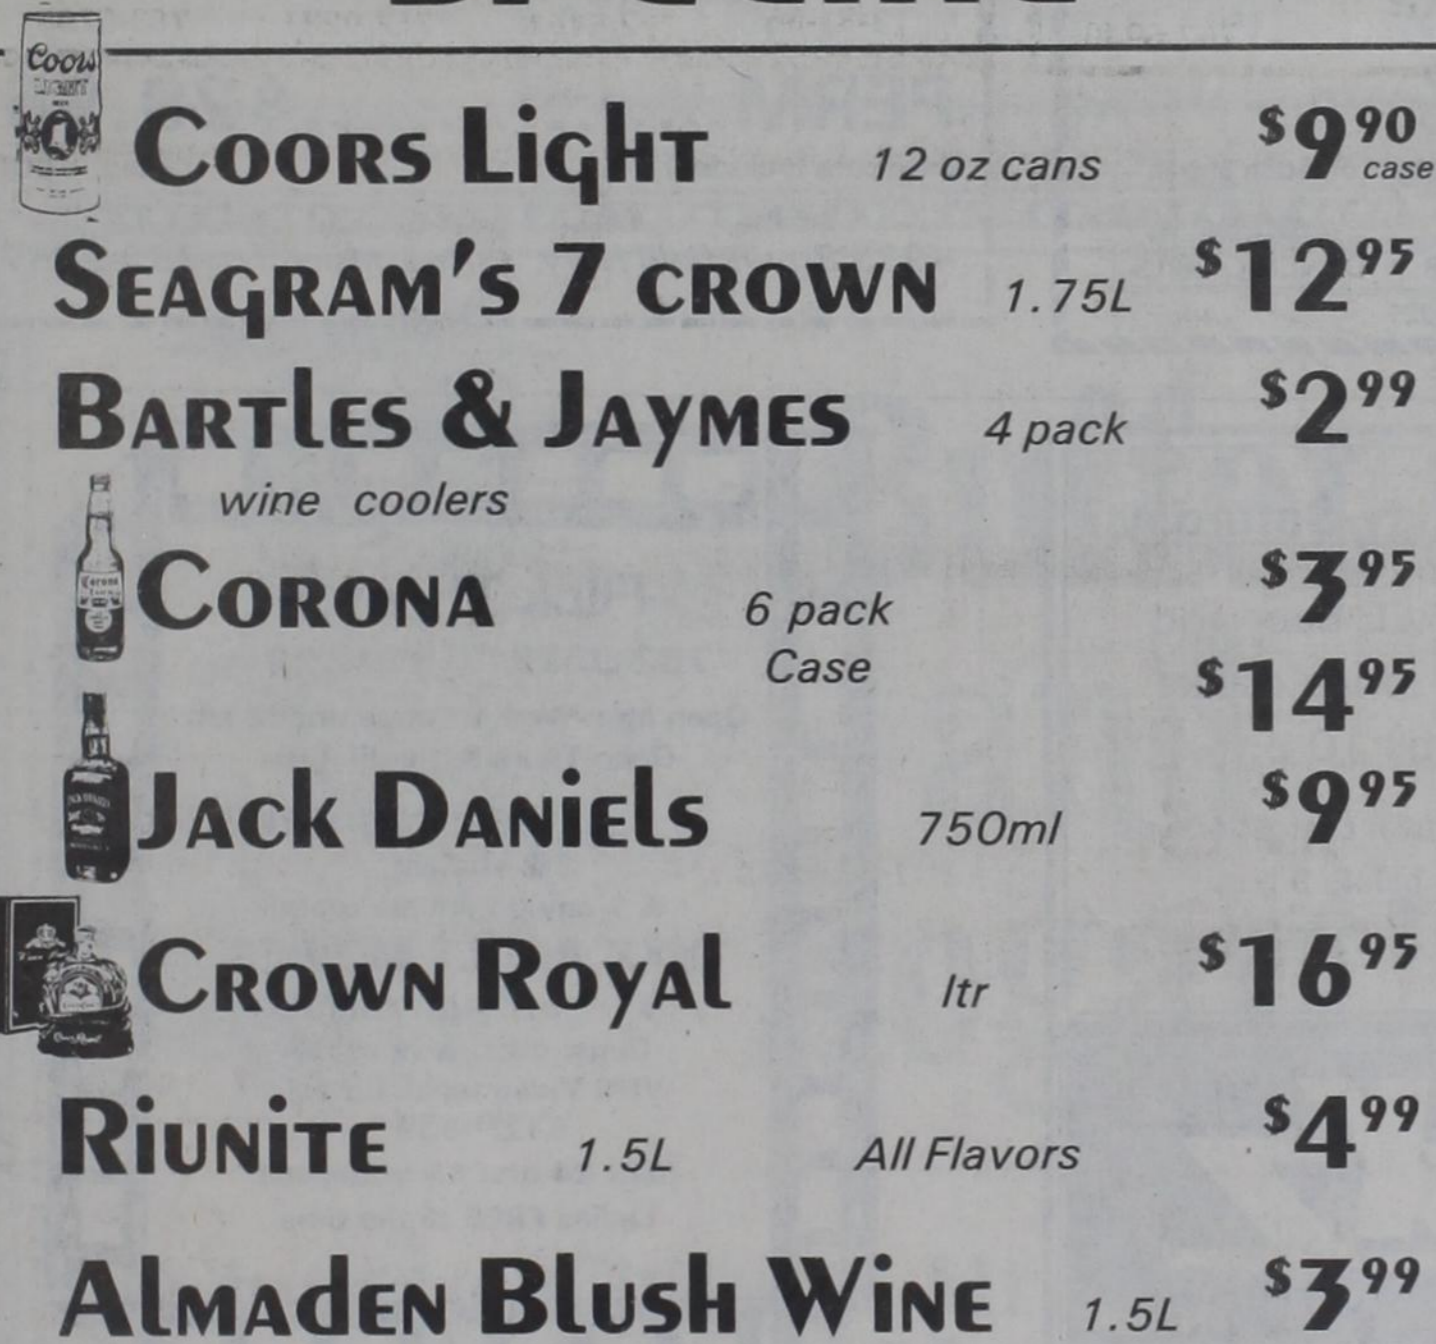 Coors
LIGHT
Coors Light 12 oz cans $9.90 case
Seagram's 7 crown 1.75L $12.95
Bartles & Jaymes 4 pack $2.99
wine coolers
Corona 6 pack $3.95
Case $14.95
Jack Daniels 750ml $9.95
Crown Royal ltr $16.95
Riunite 1.5L All Flavors $4.99
Almaden Blush Wine 1.5L $3.99